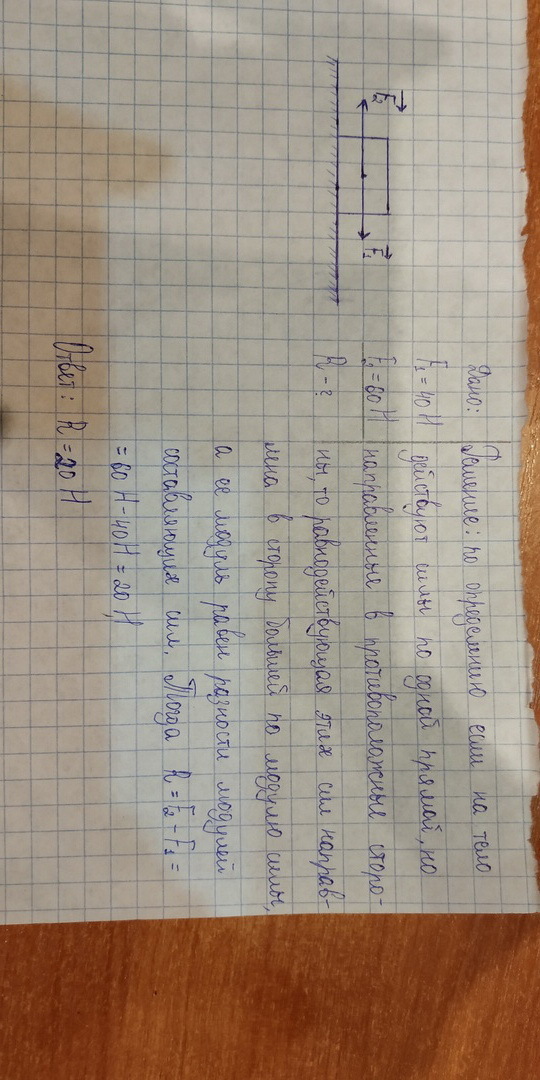 F₂
F₁
Дано:
F₁ = 40 Н
F₂ = 60 Н
R - ?
Решение: по определению если на тело
действуют силы по одной прямой, но
направленные в противоположные сторо-
ны, то равнодействующая этих сил направ-
лена в сторону большей по модулю силы,
а ее модуль равен разности модулей
составляющих сил. Тогда R = F₂ - F₁ =
= 60 Н - 40 Н = 20 Н
Ответ: R = 20 Н